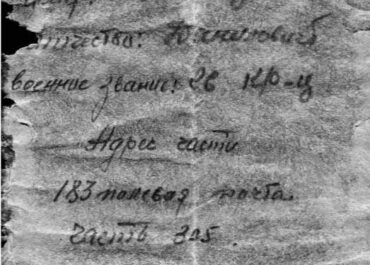 отчество: Данилович
военние звание: гв кр-ц
Адрес части
183 полевая почта.
часть 305.